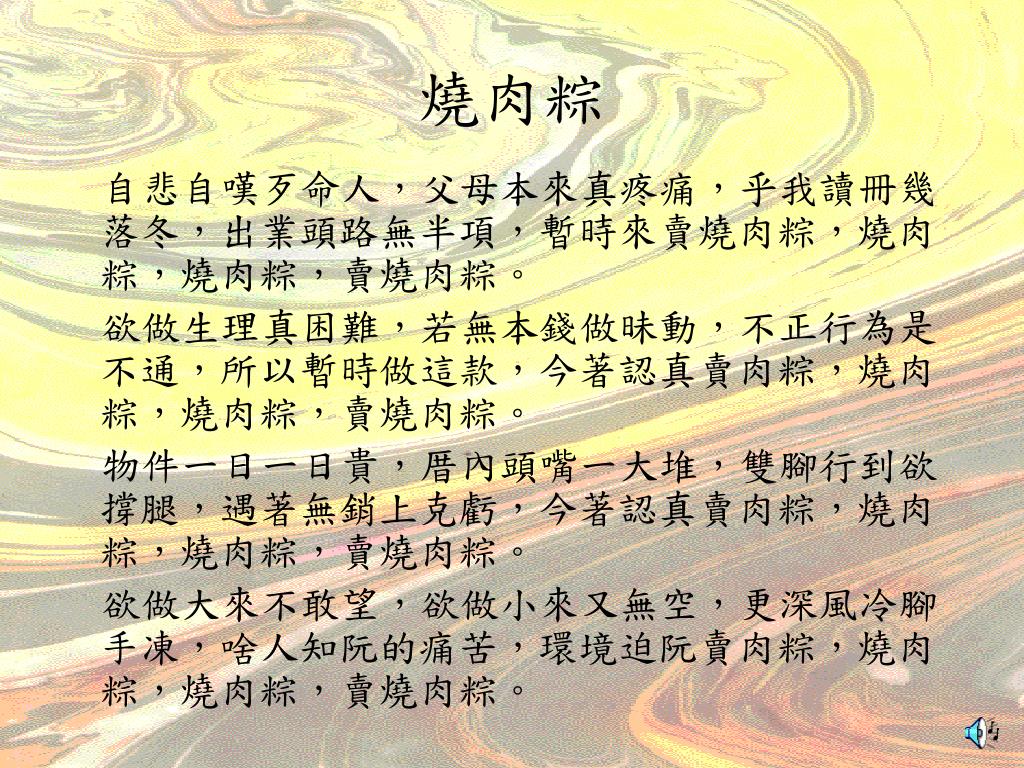 燒肉粽
自悲自嘆歹命人，父母本來真疼痛，乎我讀冊幾
落冬，出業頭路無半項，暫時來賣燒肉粽，燒肉
粽，燒肉粽，賣燒肉粽。
欲做生理真困難，若無本錢做昧動，不正行為是
不通，所以暫時做這款，今著認真賣肉粽，燒肉
粽，燒肉粽，賣燒肉粽。
物件一日一日貴，厝內頭嘴一大堆，雙腳行到欲
撐腿，遇著無銷上克虧，今著認真賣肉粽，燒肉
粽，燒肉粽，賣燒肉粽。
欲做大來不敢望，欲做小來又無空，更深風冷腳
手凍，啥人知阮的痛苦，環境迫阮賣肉粽，燒肉
粽，燒肉粽，賣燒肉粽。